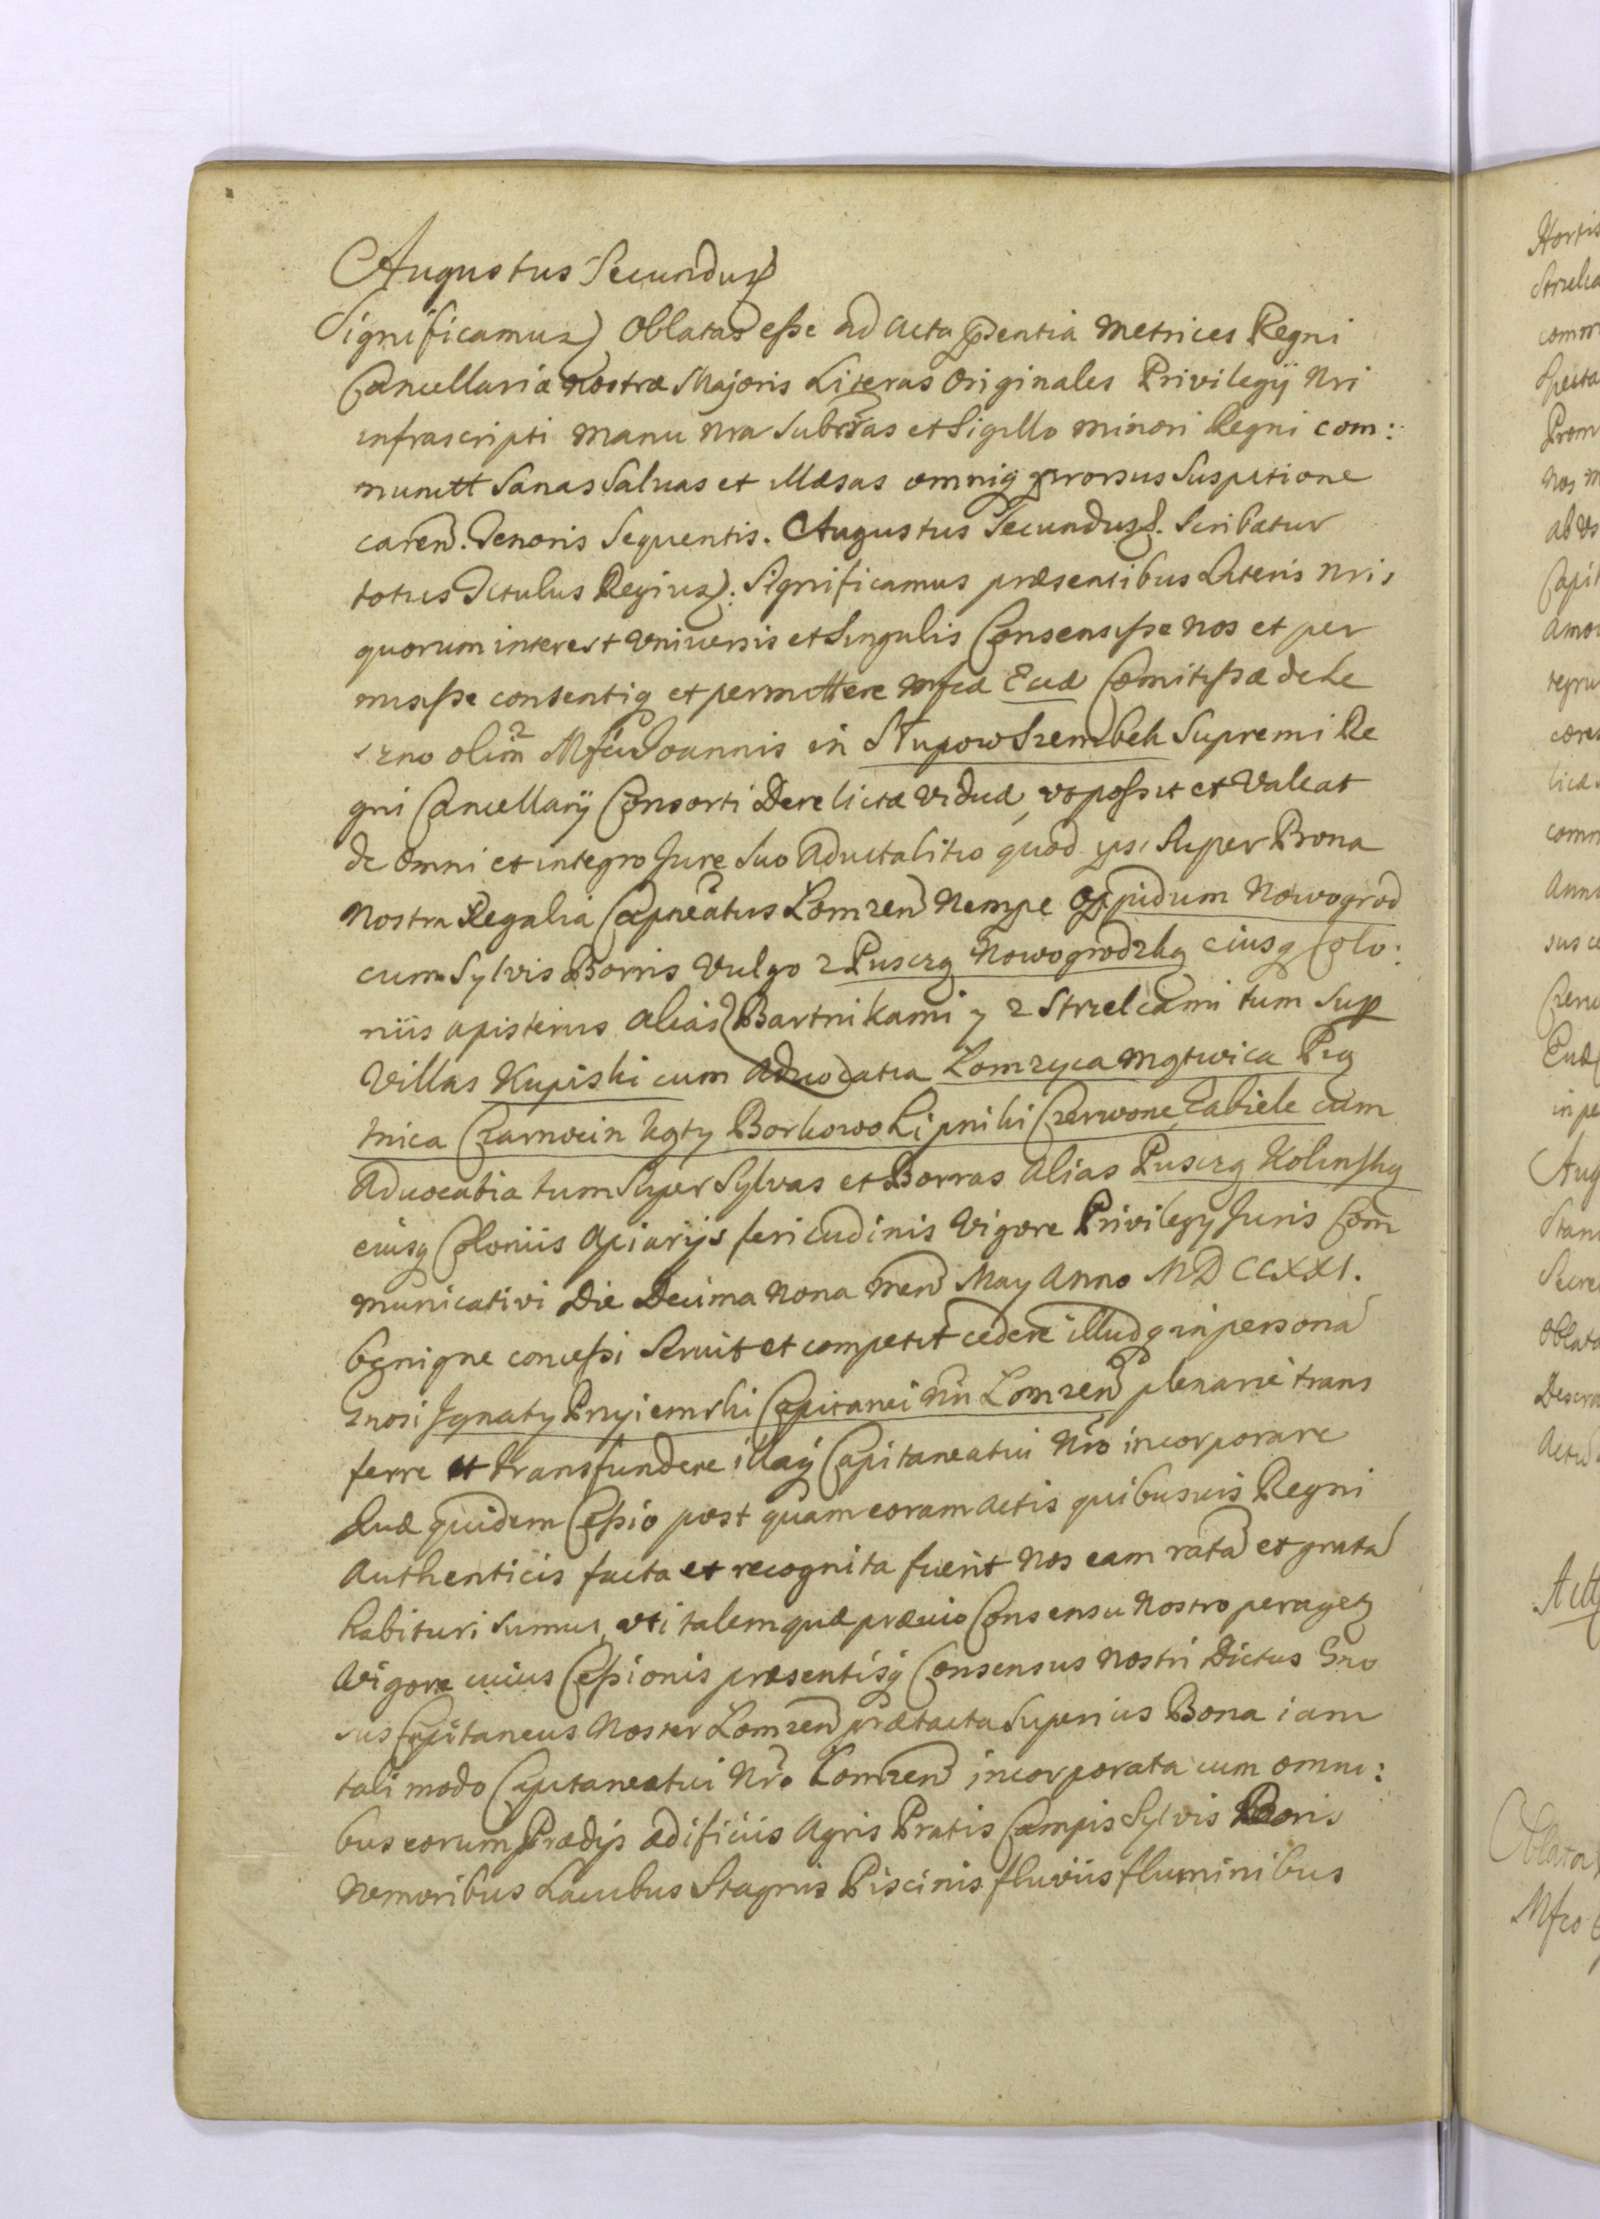 Augustus Secundus
Significamus Oblatas esse ad Acta præsentia Metrices Regni
Cancellariæ Nostræ Majoris Literas Originales Privilegÿ Nri
infrascripti Manu Nra Subscras et Sigillo minori Regni com:
munitt Sanas Salvas et Illæsas omnig prorsus Suspitione
caren. Tenoris Sequentis. Augustus Secundus. Scribatur
totus Titulus Regius: Significamus præsentibus Literis Nris
quorum interest Vniuersis et Singulis Consensisse Nos et per
misisse consentig et permittere Mfcæ Euæ Comitissæ de Le
szno olim Mfci Joannis in Słupow Szembek Supremi Re
gni Cancellarÿ Consorti Derelictæ Viduæ, vt possit et Valeat
de Omni et integro Jure Suo Aduitalitio quod ipsi Super Bona
Nostra Regalia Capneatus Lomzen Nempe Oppidum Nowogrod
cum Sylvis Borris Vulgo z Puszczą Nowogrodzką eiusq Colo:
niis apisterus alias Bartnikami y z Strzelcami tum Supp
Villas Kupiski cum Advocatia Łomzyca Mątwica Pią
tnica Czarnocin Kąty Borkowo Lipniki Czerwone Zabiele cum
Aduocatia tum Super Sylvas et Borras Alias Puszczą Kolinską
eiusq Coloniis Apiarijs fericudinis Vigore Privilegy Juris Com
municativi Die Decima Nona Men May Anno MDCCXXI.
benigne concessi Seruit et competit cedere illudq in persona
Gnosi Jgnaty Pryiemski Capitanei Nri Lomzen plenarie trans
ferre et transfundere illaq Capitaneatui Nro incorporare
Quæ quidem Cessio post quam coram Actis quibusuis Regni
Authenticis facta et recognita fuerit Nos eam rata et grata
habituri Sumus, vti talem quæ præuio Consensu Nostro peraget
Vigore cuius Cessionis præsentisq Consensus Nostri Dictus Gno
sus Capitaneus Noster Lomzen prætacta Superius Bona iam
tali modo Capitaneatui Nro Lomzen incorporata cum omni:
bus eorum Prædÿs ædificiis Agris Pratis Campis Sylvis Boris
Nemoribus Lacubus Stagnis Piscinis fluviis fluminibus